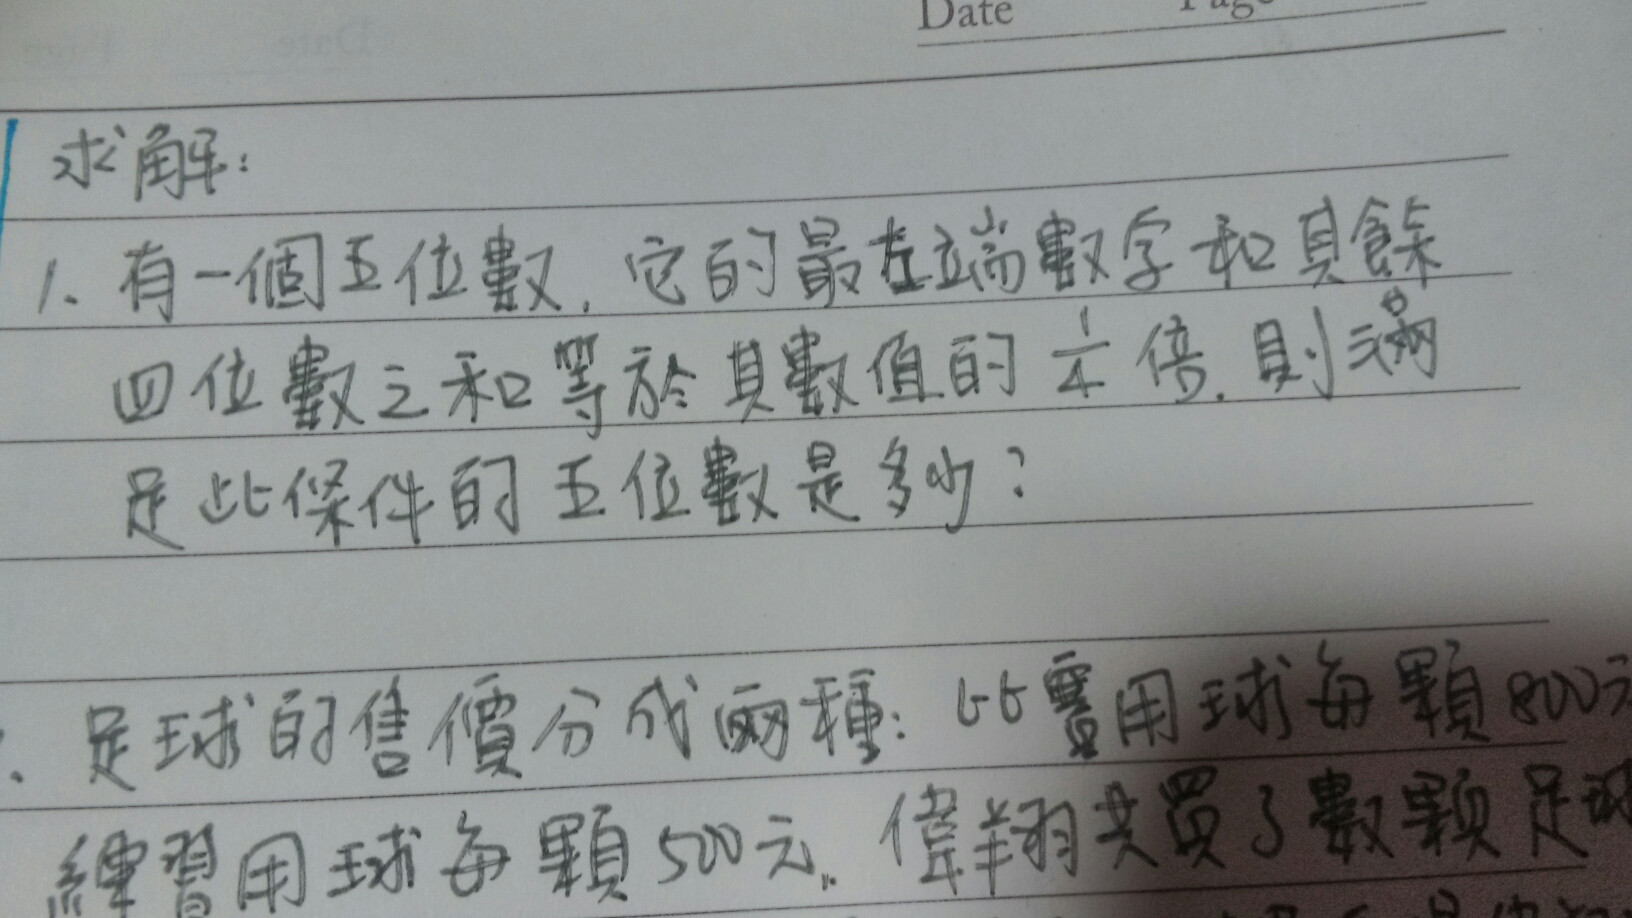 Date Page
求解:
1. 有一個五位數, 它的最左端數字和其餘
四位數之和等於其數值的 1/4 倍. 則滿
足此條件的五位數是多少?
足球的售價分成兩種: 比賽用球每顆800元
練習用球每顆500元. 偉翔共買了數顆足球